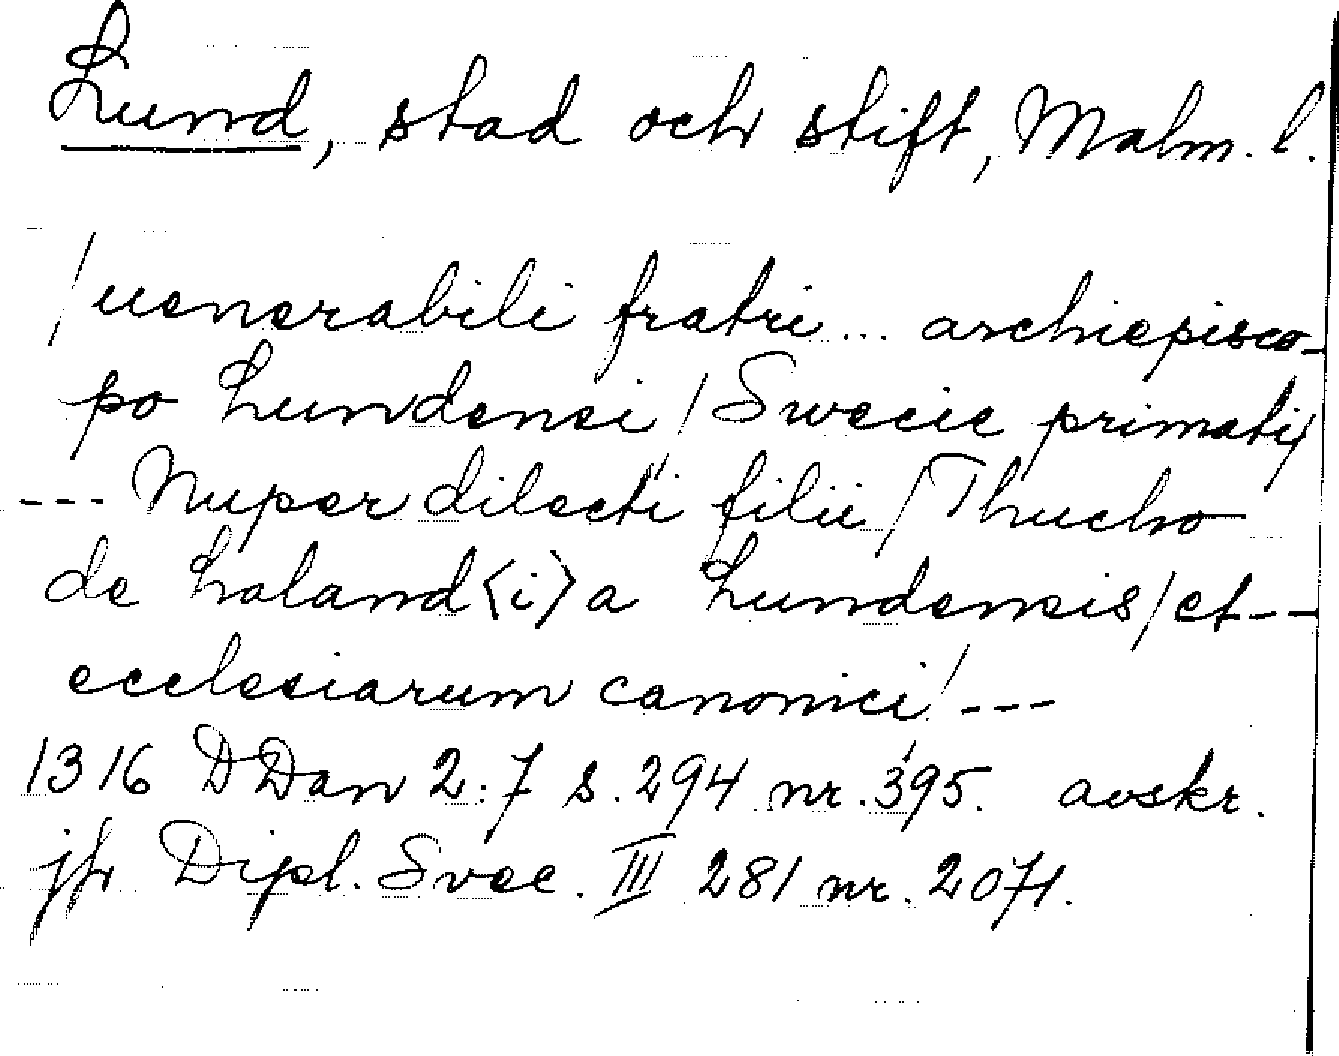 Lund, stad och stift, Malm. l.
/uenerabili fratri ... archiepisco-
po Lundensi/Swecie primati/
--- Nuper dilecti filii/Thucho
de Laland<i>a Lundensis/et --
ecclesiarum canonici/ ---
1316 DDan 2:7 s. 294 nr. 395. avskr.
jfr Dipl. Svec. III 281 nr. 2071.